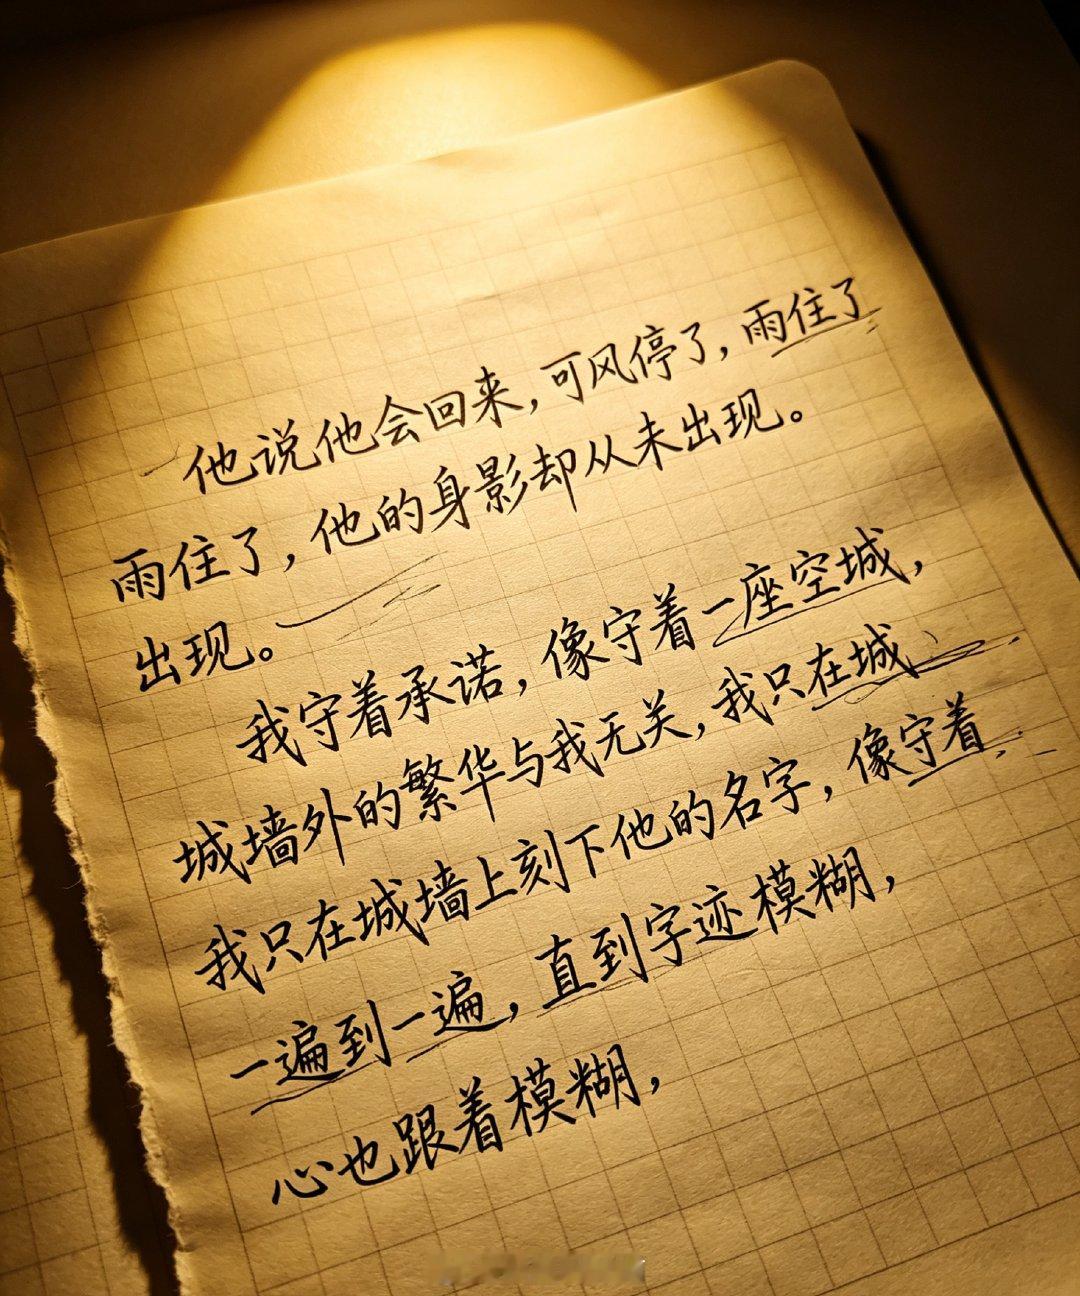 他说他会回来，可风停了，雨住了
雨住了，他的身影却从未出现。
出现。
我守着承诺，像守着一座空城，
城墙外的繁华与我无关，我只在城、
我只在城墙上刻下他的名字，像守着
一遍到一遍，直到字迹模糊，
心也跟着模糊，